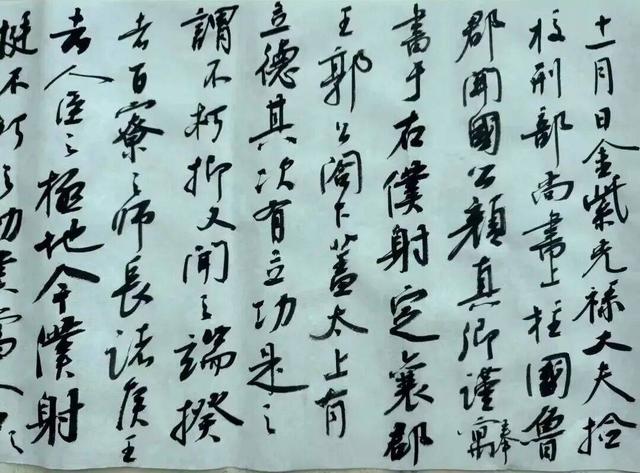 十一月日金紫光祿大夫撿
校刑部尚書上柱國魯
郡開國公顏真卿謹奉
書于右僕射定襄郡
王郭公閣下蓋太上有
立德其次有立功是之
謂不朽抑又聞之端揆
者百寮之師長諸侯王
者人臣之極地今僕射
挺不朽之功業當人